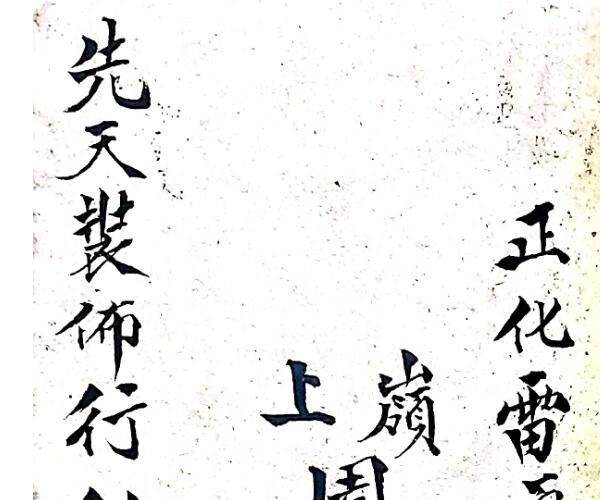 正化雷
嶺
上
先天裝佈行